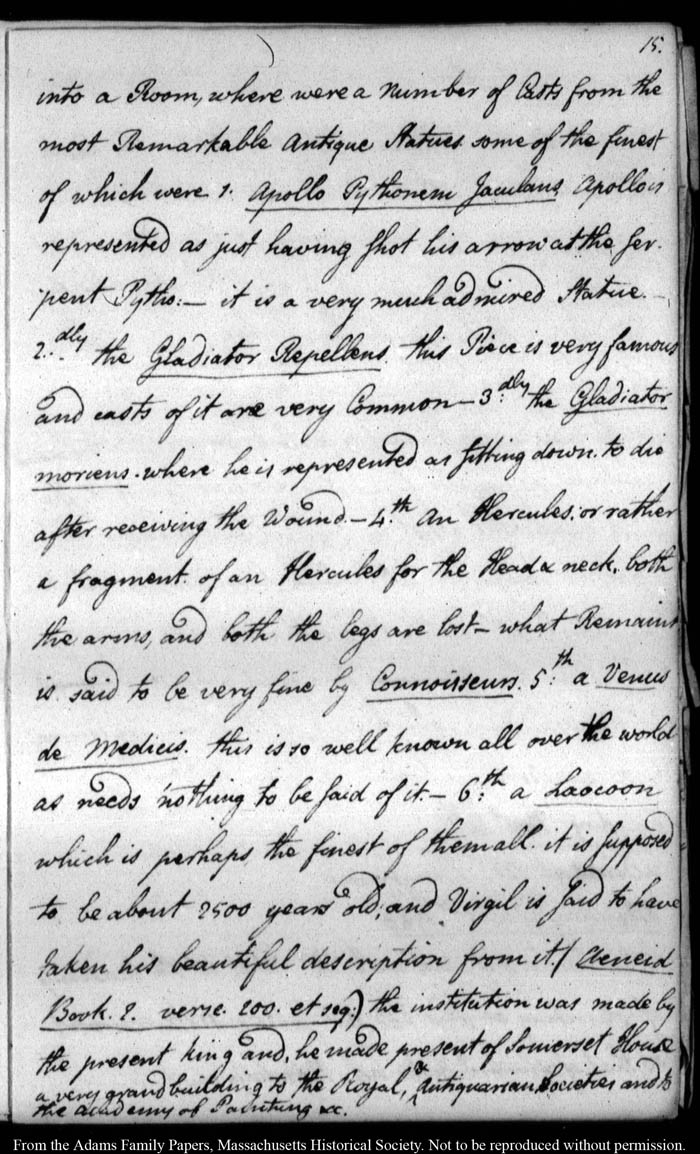 15.
into a Room, where were a number of Casts from the
most Remarkable Antique Statues. some of the finest
of which were 1. Apollo Pythonem Jaculans, Apollo is
represented as just having shot his arrow at the ser-
pent Pytho:— it is a very much admired Statue.—
2.dly the Gladiator Repellens. this Piece is very famous
and casts of it are very Common— 3.dly the Gladiator
moriens. where he is represented as sitting down. to die
after receiving the Wound.— 4.th an Hercules. or rather
a fragment of an Hercules for the Head & neck, both
the arms, and both the legs are lost— what Remains
is said to be very fine by Connoisseurs. 5.th a Venus
de Medicis. this is so well known all over the world
as needs nothing to be said of it.— 6.th a Laocoon
which is perhaps the finest of them all. it is supposed
to be about 2500 years old, and Virgil is said to have
taken his beautiful description from it. (Aeneid
Book. 2. verse. 200. et seq.) the institution was made by
the present king and, he made present of Somerset House
a very grand building to the Royal, & Antiquarian Societies and to
the academy of Painting &c.
From the Adams Family Papers, Massachusetts Historical Society. Not to be reproduced without permission.